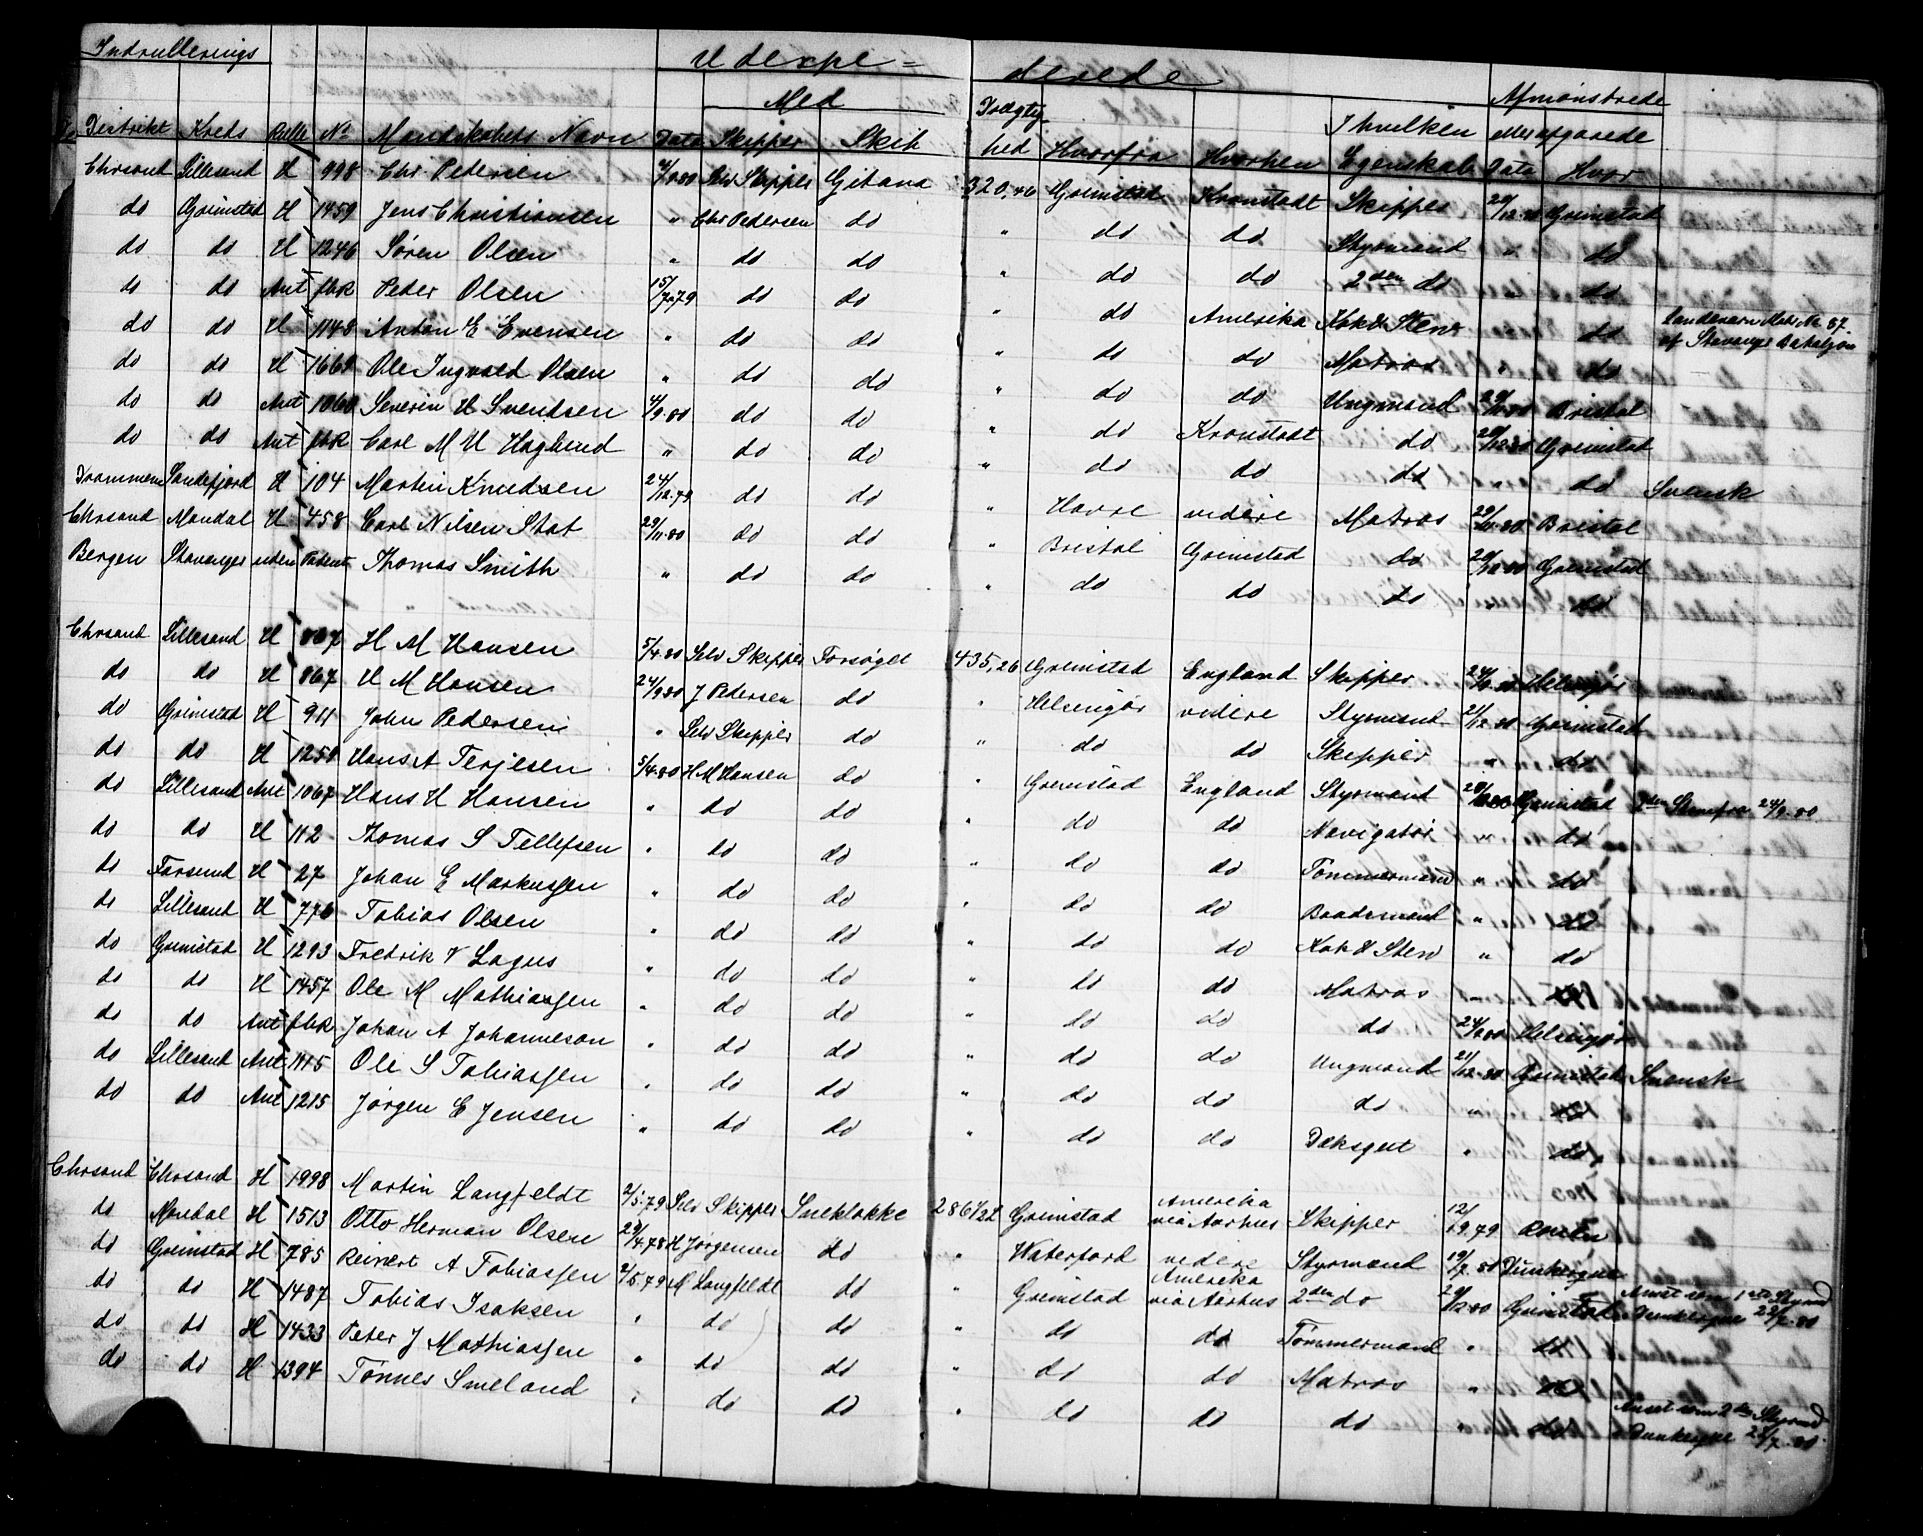 Indrullerings Udexpe= derede
Med Afmønstrede
Distrikt Kreds Rulle No Mandskabets Navn Dato Skipper Skib Drægtighed Hvorfra Hvorhen I hvilken Egenskab eller afgaaede Dato Hvor
Chrsand Lillesand H 998 Chr. Pedersen 4/9.80 Selv Skipper Gitana 320,46 Grimstad Kronstadt Skipper 20/12.80 Grimstad
do Grimstad H 1459 Jens Christiansen " Chr Pedersen do " do do Styrmand " do
do do H 1246 Søren Olsen " do do " do do 2den do " do
do do Ant fbk Peder Olsen 15/7.79 do do " do Amerika Kok & Stew " do Landeværn Mdr No 87 af Stavanger Bataljon
do do H 1148 Anton E Evensen " do do " do do Matros " do
do do H 1669 Ole Ingvald Olsen " do do " do do Ungmand 29/11.80 Bristol
do do Ant 1060 Severin H Svendsen 4/9.80 do do " do Kronstadt do 20/12.80 Grimstad
do do Ant fbk Carl M U Haglund " do do " do do do " do Svensk
Drammen Sandefjord H 104 Martin Knudsen 24/12.79 do do " Havre videre Matros 29/11.80 Bristol
Chrsand Mandal H 458 Carl Nilsen Stat 29/11.80 do do " Bristol Grimstad do 20/12.80 Grimstad
Bergen Stavanger uden Patent Thomas Smith " do do " do do do " do
Chrsand Lillesand H 867 H M Hansen 5/4.80 Selv Skipper Forsøget 435,26 Grimstad England Skipper 24/9.80 Helsingør
do do H 867 H M Hansen 24/9.80 J Pedersen do " Helsingør videre Styrmand 21/12.80 Grimstad
do Grimstad H 911 John Pedersen " Selv Skipper do " do do Skipper " do
do do H 1250 Hans A Terjesen 5/4.80 H M Hansen do " Grimstad England Styrmand Grimstad 2den Styrm fra 24/9.80
do Lillesand Ant 1067 Hans H Hansen " do do " do do Navigatør " do
do do H 112 Thomas S Tellefsen " do do " do do Tømmermand " do
do Farsund H 27 Johan E Markussen " do do " do do Baadsmand " do
do Lillesand H 776 Tobias Olsen " do do " do do Kok & Stew " do
do Grimstad H 1293 Fredrik V Lagus " do do " do do Matros " do
do do H 1457 Ole M Mathiassen " do do " do do do 24/9.80 Helsingør
do do Ant fbk Johan A Johanneson " do do " do do Ungmand 21/12.80 Grimstad Svensk
do Lillesand Ant 1115 Ole S Tobiassen " do do " do do do " do
do do Ant 1215 Jørgen E Jensen " do do " do do Dæksgut " do
Chrsand Chrsand H 1998 Martin Langfeldt 2/5.79 Selv Skipper Sneklokke 286 1/2 Grimstad Amerika via Aarhus Skipper 12/9.79
do Mandal H 1513 Otto Herman Olsen 29/4.78 H Jørgensen do " Waterford videre Styrmand 19/7.80 Dunkerque
do Grimstad H 785 Reinert A Tobiassen 2/5.79 M Langfeldt do " Grimstad Amerika via Aarhus 2den do 20/12.80 Grimstad Ansat som 1ste Styrmd Dunkerque 22/7.80
do do H 1487 Tobias Isaksen " do do " do do Tømmermand " do
do do H 1433 Peter J Mathiassen " do do " do do Matros " do
do do H 1394 Tønnes Smeland " do do " do do do " do Ansat som 2den Styrmd Dunkerque 22/7.80